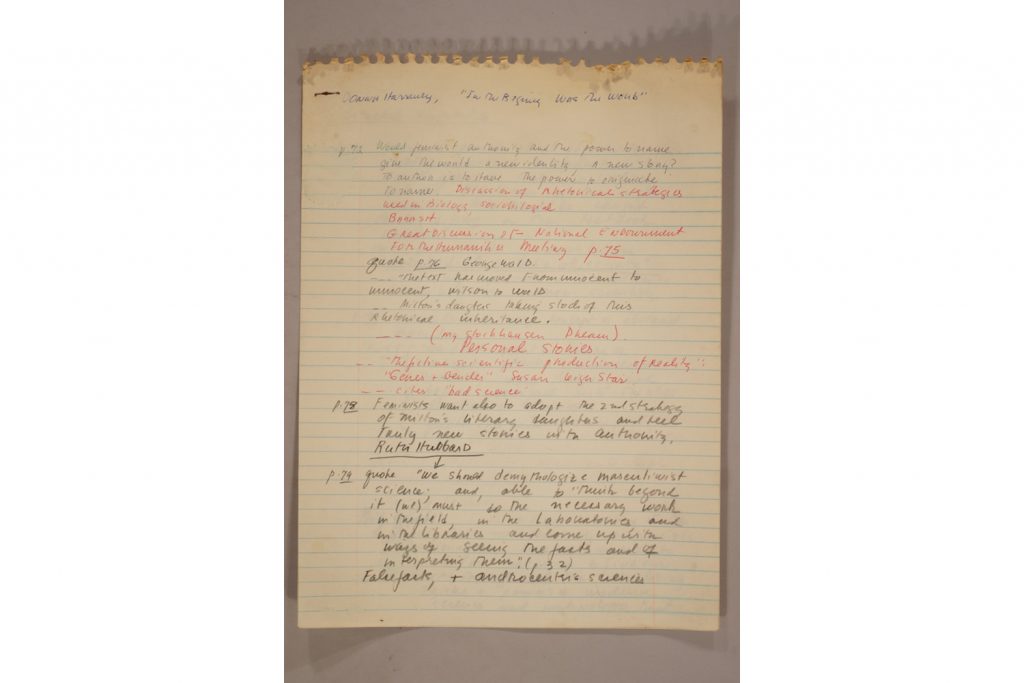 Donna Harraway, "In the Begining Was the Word"
p.72 Would feminist authority and the power to name
give the world a new identity, a new story?
To author is to have the power to originate
to name. Discussion of Rhetorical strategies
used in Biology, sociobiological
Barash
Great Discussion of National Endowment
For the Humanities Meeting p.75
quote p.76 George Wald.
--- "The text has moved from innocent to
innocent, Wilson to Wald
-- Milton's daughters taking stock of this
rhetorical inheritance.
---- (my stockhausen Dream)
Personal stories
-- "The fictive scientific production of reality":
"Genes + Gender" Susan Leigh Star
-- cites "bad science"
p.78 Feminists want also to adopt the 2nd strategy
of Milton's literary daughters and tell
truly new stories with authority,
Ruth Hubbard
p.79 quote "we should demythologize masculinist
science; and, able to "think beyond
it (we) must do the necessary work
in the field, in the laboratories and
in the libraries and come up with
ways of seeing the facts and of
interpreting them": (p 32)
False facts, + androcentric sciences